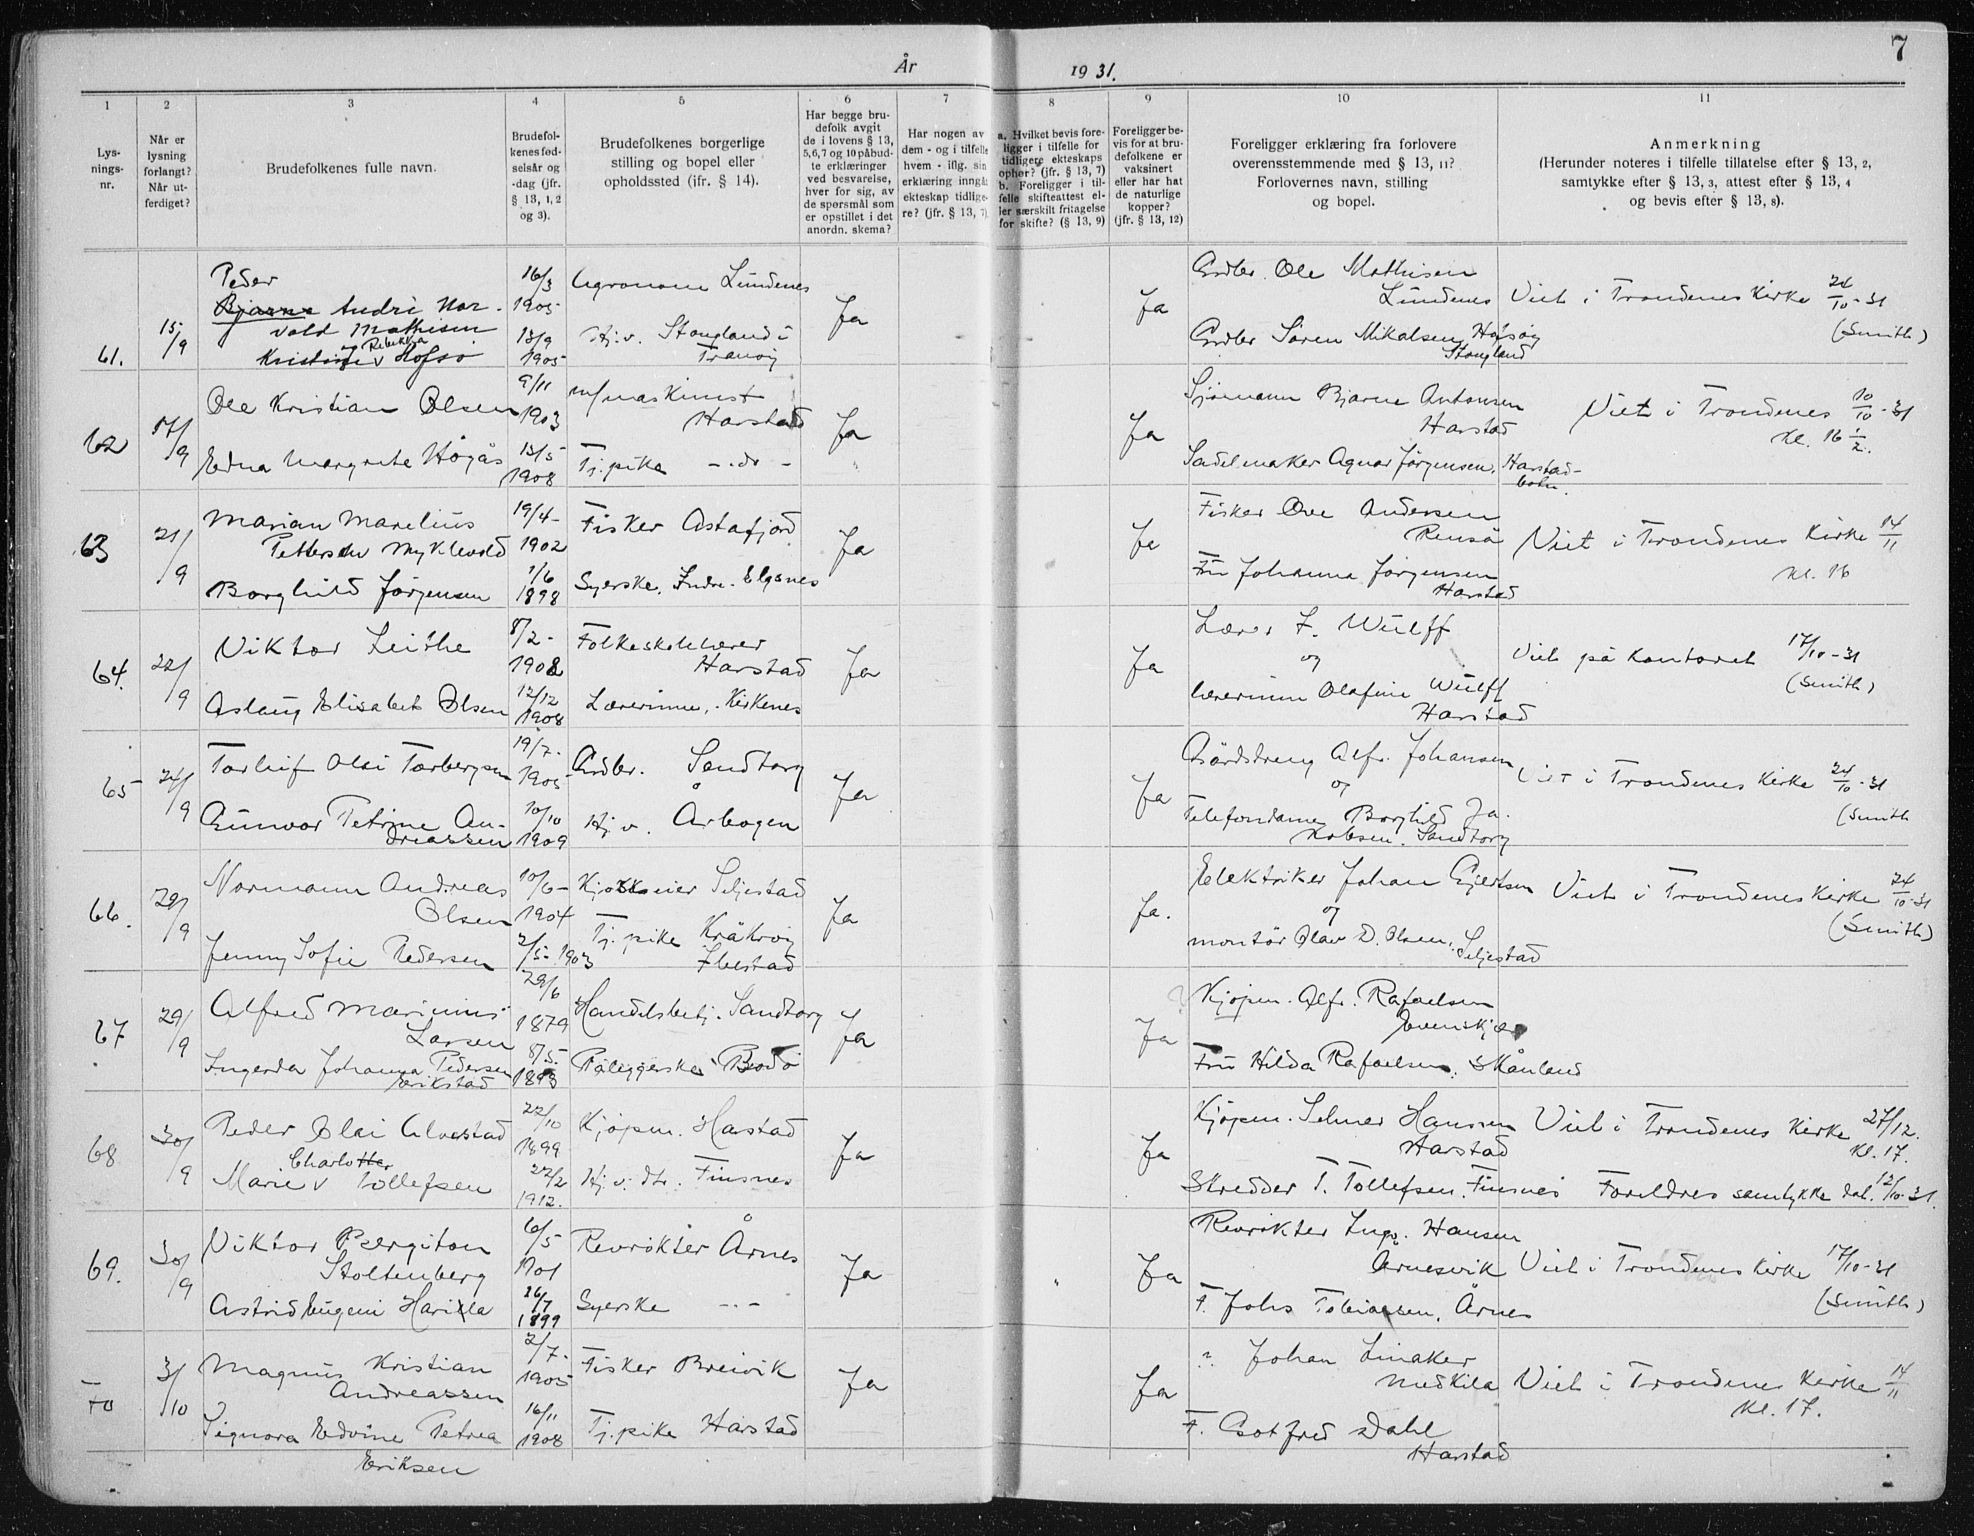 7
År 1931.
1 2 3 4 5 6 7 8 9 10 11
Lys-
nings-
nr.
Når er
lysning
forlangt?
Når ut-
ferdiget?
Brudefolkenes fulle navn.
Brudefol-
kenes fød-
selsår og
-dag (jfr.
§ 13, 1, 2
og 3).
Brudefolkenes borgerlige
stilling og bopel eller
opholdssted (jfr. § 14).
Har begge bru-
defolk avgit
de i lovens § 13,
5,6,7 og 10 påbud-
te erklæringer
ved besvarelse,
hver for sig, av
de spørsmål som
er opstillet i det
anordn. skema?
Har nogen av
dem - og i tilfelle
hvem - iflg. sin
erklæring inngåt
ekteskap tidlige-
re? (jfr. § 13, 7)
a. Hvilket bevis fore-
ligger i tilfelle for
tidligere ekteskaps
ophør? (jfr. § 13, 7)
b. Foreligger i til-
felle skifteattest el-
ler særskilt fritagelse
for skifte? (§ 13, 9)
Foreligger be-
vis for at bru-
defolkene er
vaksinert
eller har hat
de naturlige
kopper?
(jfr. § 13, 12)
Foreligger erklæring fra forlovere
overensstemmende med § 13, 11?
Forlovernes navn, stilling
og bopel.
Anmerkning
(Herunder noteres i tilfelle tillatelse efter § 13, 2,
samtykke efter § 13, 3, attest efter § 13, 4
og bevis efter § 13, 8).
61. 15/9
Peder
Bjarne André Nor-
vald Mathisen
og Rebekka
Kristine v Hofsø
16/3
1905
13/9
1905
Agronom Lundenes
Hj.v. Stongland i
Tranøy
Ja Ja
Grdbr. Ole Mathisen
Lundenes
Grdbr Søren Mikalsen Hofsøy
Stongland
Viet i Trondenes Kirke 24/10-31
(Smith)
62 17/9
Ole Kristian Olsen
Edna Margrete Høgås
9/11
1903
13/5
1908
m/maskinist
Harstad
Tj.pike -.do -
Ja Ja
Sjømann Bjarne Antonsen
Harstad
Sadelmaker Agnar Jørgensen, Harstad-
botn.
Viet i Trondenes 10/10-31
Kl. 16 1/2.
63 21/9
Marian Marelius
Pettersen Myklevold
Borghild Jørgensen
19/4-
1902
1/6
1898
Fisker Astafjord
Syerske, Indre-Elgsnes
Ja Ja
Fisker Ove Andersen
Renså
Fru Johanna Jørgensen
Harstad
Viet i Trondenes Kirke 14/11
Kl. 16
64. 22/9
Viktor Leithe
Aslaug Elisabet Olsen
8/2-
1908
12/12
1908
Folkeskolelærer
Harstad
Lærerinne, Kirkenes
Ja Ja
Lærer F. Wulff
og
lærerinne Olafine Wulff
Harstad
Viet på Kontoret 17/10-31
(Smith)
65 24/9
Torleif Olai Torbergsen
Gunvor Petrine An-
dreassen
19/7-
1905
10/10
1909
Grdbr. Sandtorg
Hj.v. Årbogen
Ja Ja
Gårdsdreng Alfr. Johansen
og
Telefondame Borghild Ja-
kobsen. Sandtorg
Viet i Trondenes Kirke 24/10-31
(Smith
66. 29/9
Normann Andreas
Olsen
Jenny Sofie Pedersen
10/6-
1904
2/5-1903
Kioskeier Seljestad
Tj.pike Kråkrøy
Ibestad
Ja Ja.
Elektriker Johan Gjertsen
og
montør Olav D. Olsen, Seljestad
Viet i Trondenes Kirke 24/10-31
(Smith)
67 29/9
Alfred Marinius
Larsen
Ingerda Johanna Pedersen
29/6
1879
8/5.
1893
Handelsbetj. Sandtorg
Påleggerske Bodø
Ja Ja
Kjøpm. Alfr. Rafaelsen
Evenskjær
Fru Hilda Rafaelsen, Skånland
68 30/9
Peder Olai Alvestad
Charlotte
Marie v Tollefsen
22/10
1899
22/2
1912.
Kjøpm. Harstad
Hj.v. dtr. Finsnes
Ja Ja
Kjøpm. Selmer Hansen
Harstad
Skredder T. Tollefsen. Finsnes
Viet i Trondenes Kirke 27/12.
Kl. 17.
Foreldres samtykke dat. 12/10-31.
69. 30/9
Viktor Bergiton
Stoltenberg
Astrid Eugeni Harilla
6/5
1901
26/7
1899
Revrøkter Årnes
Syerske -.-
Ja Ja
Revrøkter Ingv. Hansen
Årnesvik
F. Johs Tobiassen, Årnes
Viet i Trondenes Kirke 17/10-31
(Smith)
70 3/10
Magnus Kristian
Andreassen
Signora Edvine Petrea
Eriksen
2/7-
1905
16/11
1908
Fisker Breivik
Tj.pike Harstad
Ja Ja
Johan Linaker
Medkila
F. Gotfred Dahl
Harstad
Viet i Trondenes Kirke 14/11
Kl. 17.